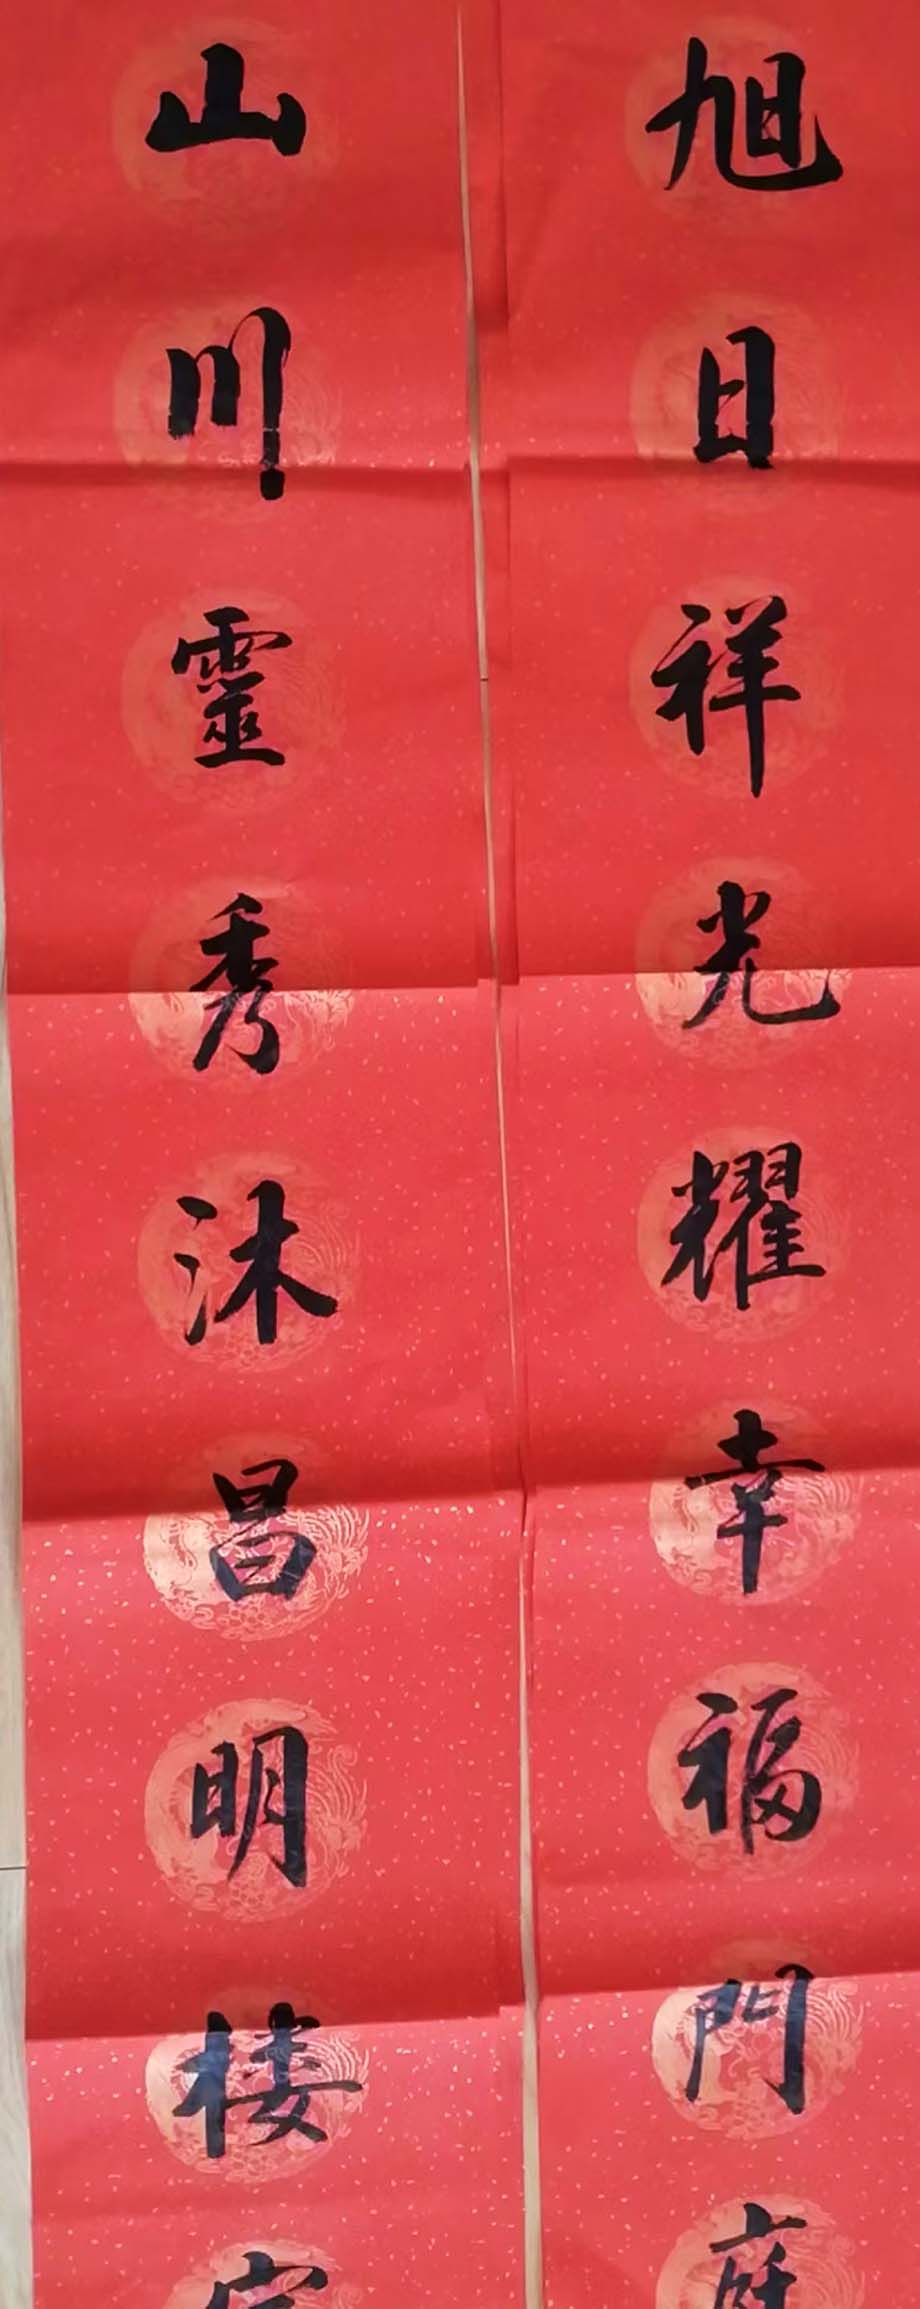 旭日祥光耀幸福門庭
山川靈秀沐昌明楼